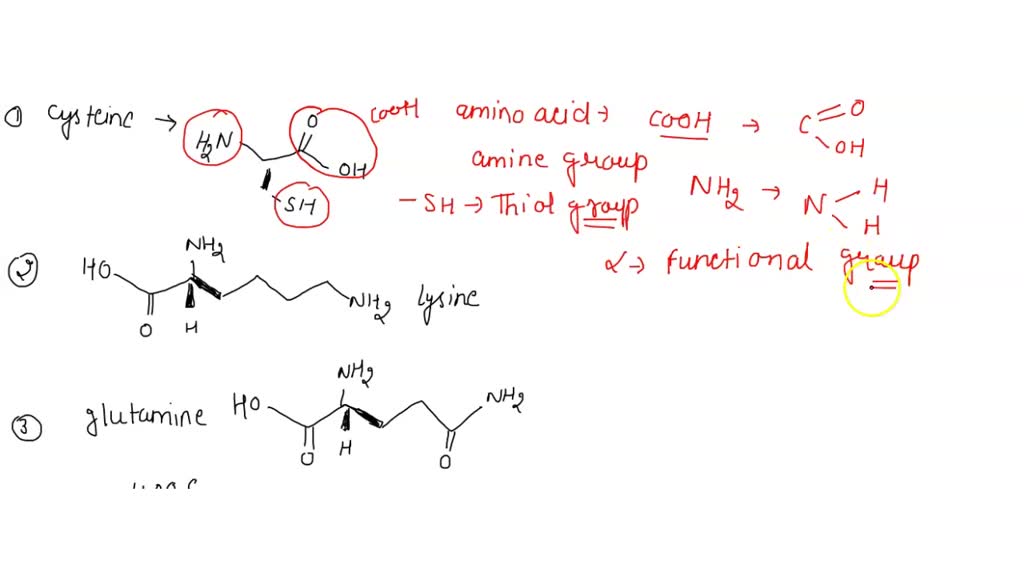 ① cysteine → H₂N O OH SH COOH amino acid → COOH → C O OH
amine group NH₂ → N H H
-SH → Thiol group
α → functional group
② HO O NH₂ H NH₂ lysine
③ glutamine HO O NH₂ H O NH₂